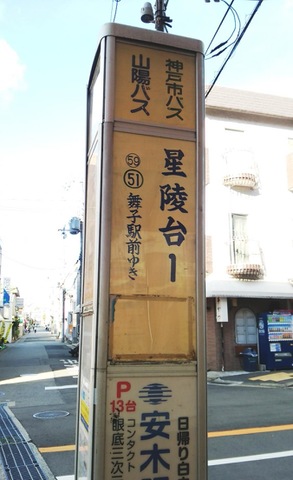 神戸市バス
山陽バス
星陵台1
59
51
舞子駅前ゆき
P
13台
日帰り白
安木
コンタクト
眼底三次